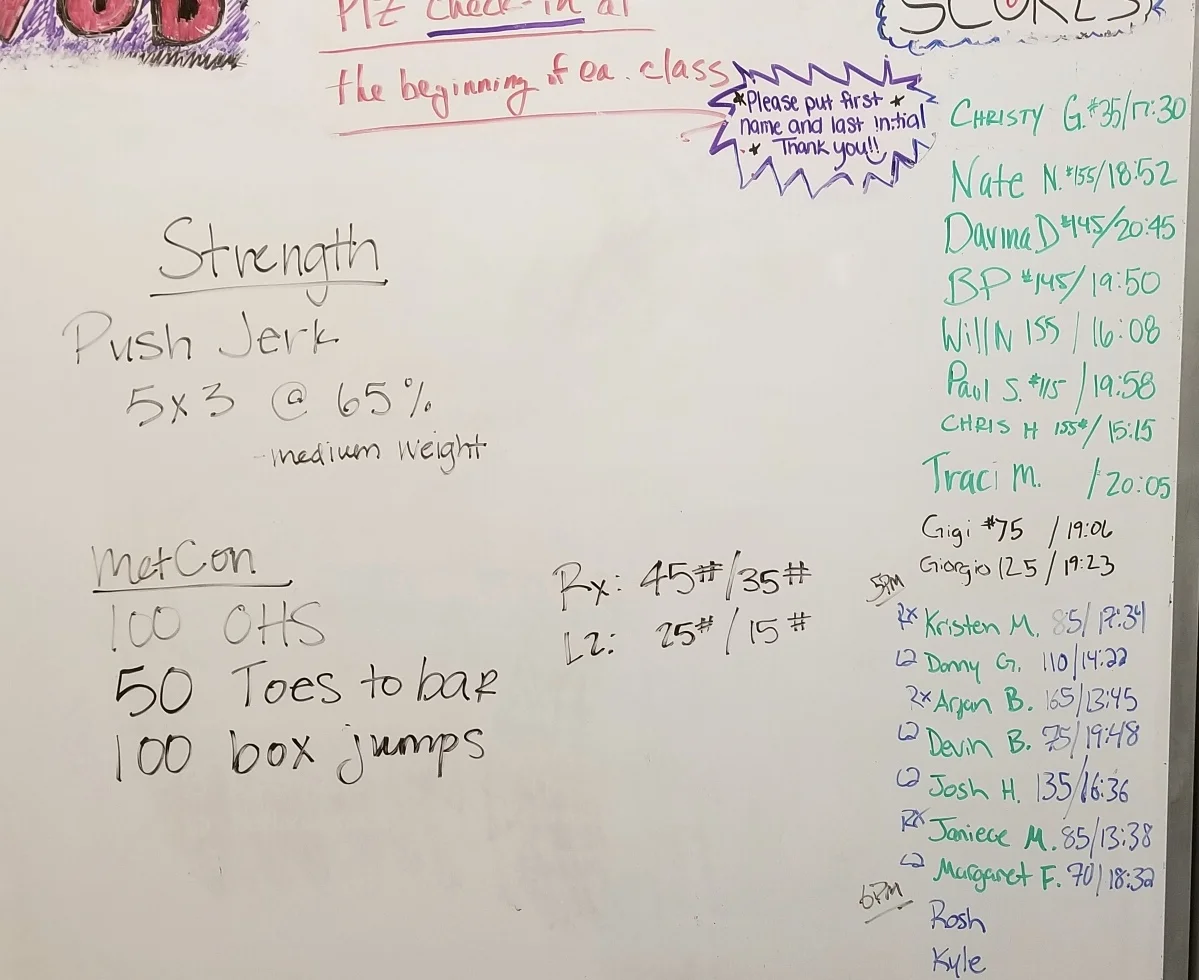 PLZ check-in at
the beginning of ea. class
SCORES
*Please put first *
name and last initial
* Thank you!!
Strength
Push Jerk
5x3 @ 65%
-medium weight
MetCon
100 OHS
50 Toes to bar
100 box jumps
Rx: 45#/35#
L2: 25#/15#
CHRISTY G. #35/17:30
Nate N. #155/18:52
Davina D #145/20:45
BP #145/19:50
Will N 155/16:08
Paul S. #115/19:58
CHRIS H 155#/15:15
Traci M. /20:05
Gigi #75 /19:06
Giorgio 125/19:23
5PM
Rx Kristen M. 85/17:34
L2 Donny G. 110/14:22
Rx Arjan B. 165/13:45
L2 Devin B. 75/19:48
L2 Josh H. 135/16:36
Rx Janiece M. 85/13:38
L2 Margaret F. 70/18:32
6PM
Rosh
Kyle